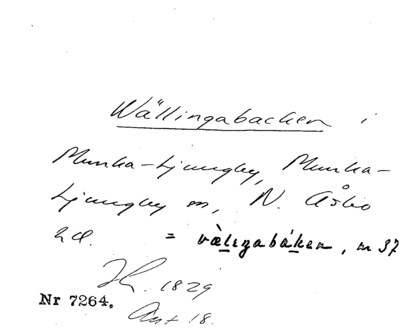 Wällingabacken i
Munka-Ljungby, Munka-
Ljungby sn, N. Åsbo
hd. = vàlıgabákan, m 37
1829
Nr 7264.